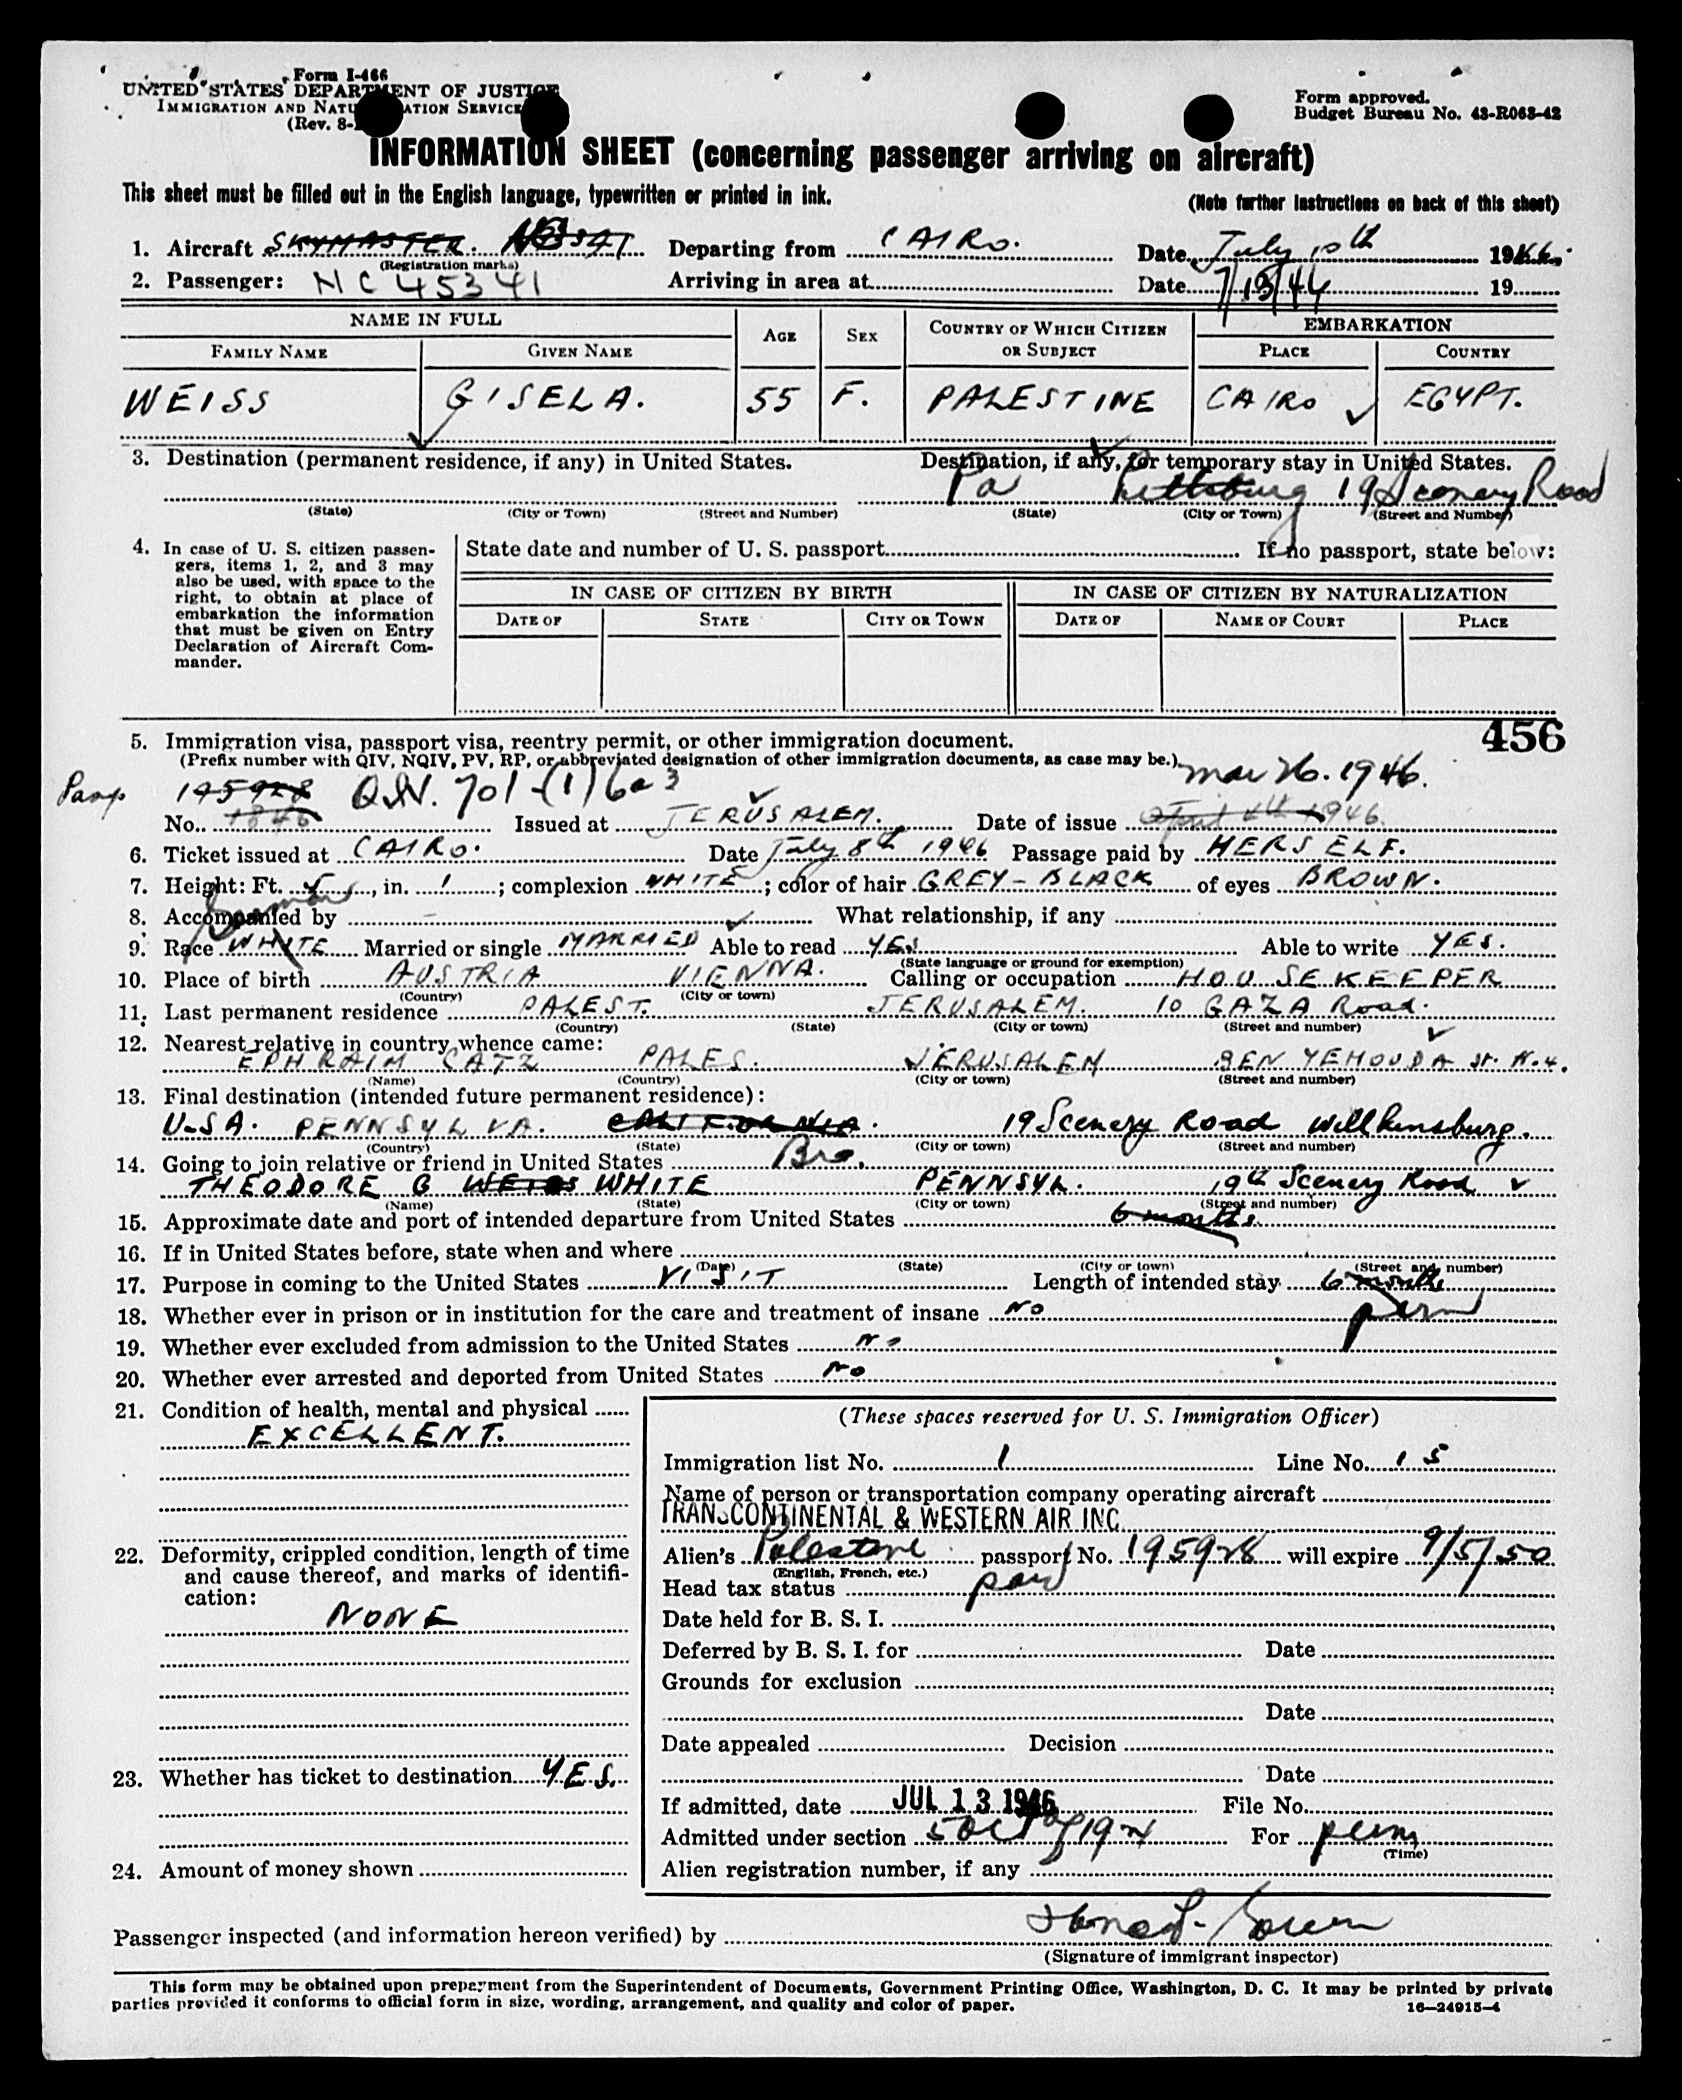 Form I-466
UNITED STATES DEPARTMENT OF JUSTICE
IMMIGRATION AND NATURALIZATION SERVICE
(Rev. 8-
Form approved.
Budget Bureau No. 43-R063-42
INFORMATION SHEET (concerning passenger arriving on aircraft)
This sheet must be filled out in the English language, typewritten or printed in ink.
(Note further instructions on back of this sheet)
1. Aircraft SKYMASTER. Departing from CAIRO. Date July 10th 1946.
(Registration marks)
2. Passenger: NC 45341 Arriving in area at Date 7/13/46 19
NAME IN FULL AGE SEX COUNTRY OF WHICH CITIZEN OR SUBJECT EMBARKATION
FAMILY NAME GIVEN NAME PLACE COUNTRY
WEISS GISELA. 55 F. PALESTINE CAIRO EGYPT.
3. Destination (permanent residence, if any) in United States. Destination, if any, for temporary stay in United States.
Pa Pittsburg 19 Scenery Road
(State) (City or Town) (Street and Number) (State) (City or Town) (Street and Number)
4. In case of U. S. citizen passen-
gers, items 1, 2, and 3 may
also be used, with space to the
right, to obtain at place of
embarkation the information
that must be given on Entry
Declaration of Aircraft Com-
mander.
State date and number of U. S. passport If no passport, state below:
IN CASE OF CITIZEN BY BIRTH IN CASE OF CITIZEN BY NATURALIZATION
DATE OF STATE CITY OR TOWN DATE OF NAME OF COURT PLACE
456
5. Immigration visa, passport visa, reentry permit, or other immigration document.
(Prefix number with QIV, NQIV, PV, RP, or abbreviated designation of other immigration documents, as case may be.)
Mar 26. 1946.
195928 701-(1)6a3
No. 1846 Issued at JERUSALEM. Date of issue April 1946.
6. Ticket issued at CAIRO. Date July 8th 1946 Passage paid by HERSELF.
7. Height: Ft. 5, in. 1; complexion WHITE; color of hair GREY-BLACK of eyes BROWN.
8. Accompanied by – What relationship, if any
German
9. Race WHITE Married or single MARRIED Able to read YES Able to write YES.
(State language or ground for exemption)
10. Place of birth AUSTRIA VIENNA. Calling or occupation HOUSEKEEPER
(Country) (City or town)
11. Last permanent residence PALEST. JERUSALEM. 10 GAZA Road.
(Country) (State) (City or town) (Street and number)
12. Nearest relative in country whence came:
EPHRAIM CATZ PALES. JERUSALEM BEN YEHOUDA St. N.4.
(Name) (Country) (City or town) (Street and number)
13. Final destination (intended future permanent residence):
USA. PENNSYLVA. CALIFORNIA. 19 Scenery Road Wilkinsburg.
(Country) (State) (City or town) (Street and number)
14. Going to join relative or friend in United States Bro.
THEODORE G WEISS WHITE PENNSYL. 19th Scenery Road
(Name) (State) (City or town) (Street and number)
15. Approximate date and port of intended departure from United States 6 months
16. If in United States before, state when and where
(Date) (State) (City or town) (Street and number)
17. Purpose in coming to the United States VISIT Length of intended stay 6 months
perm
18. Whether ever in prison or in institution for the care and treatment of insane NO
19. Whether ever excluded from admission to the United States NO
20. Whether ever arrested and deported from United States NO
21. Condition of health, mental and physical
EXCELLENT.
22. Deformity, crippled condition, length of time
and cause thereof, and marks of identifi-
cation:
NONE
23. Whether has ticket to destination YES.
24. Amount of money shown
(These spaces reserved for U. S. Immigration Officer)
Immigration list No. 1 Line No. 15
Name of person or transportation company operating aircraft
TRANSCONTINENTAL & WESTERN AIR INC
Alien's Palestine passport No. 195928 will expire 9/5/50
(English, French, etc.)
Head tax status paid
Date held for B. S. I.
Deferred by B. S. I. for Date
Grounds for exclusion
Date
Date appealed Decision
Date
If admitted, date JUL 13 1946 File No.
Admitted under section 5 act of 1924 For perm
(Time)
Alien registration number, if any
Passenger inspected (and information hereon verified) by
(Signature of immigrant inspector)
This form may be obtained upon prepayment from the Superintendent of Documents, Government Printing Office, Washington, D. C. It may be printed by private
parties provided it conforms to official form in size, wording, arrangement, and quality and color of paper.
16—24915-4